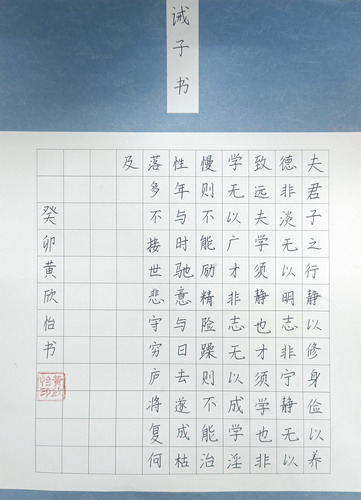 诫子书
夫君子之行静以修身俭以养
德非淡无以明志非宁静无以
致远夫学须静也才须学也非
学无以广才非志无以成学淫
慢则不能励精险躁则不能治
性年与时驰意与日去遂成枯
落多不接世悲守穷庐将复何
及
癸卯黄欣怡书